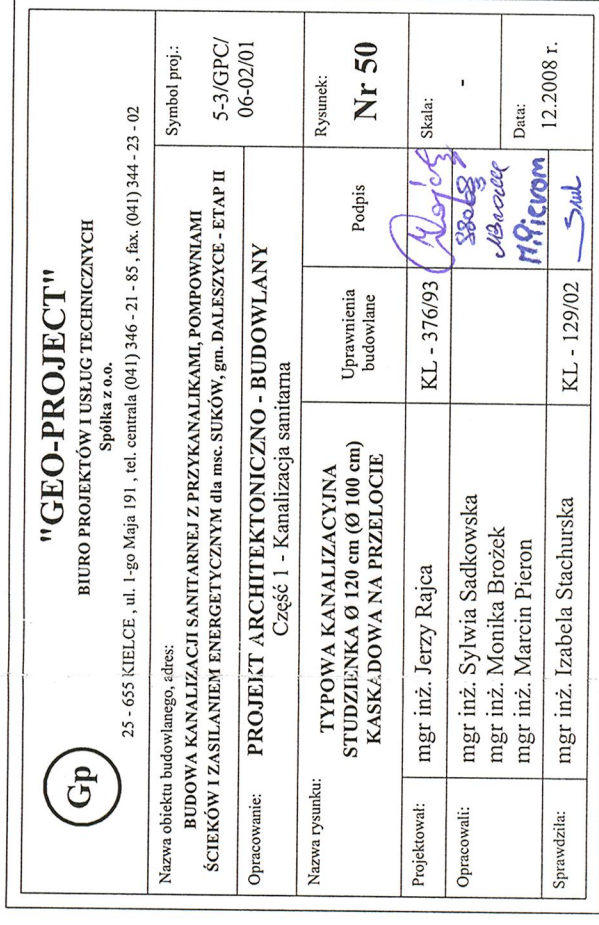 Gp
"GEO-PROJECT"
BIURO PROJEKTÓW I USŁUG TECHNICZNYCH
Spółka z o.o.
25 - 655 KIELCE , ul. 1-go Maja 191 , tel. centrala (041) 346 - 21 - 85 , fax. (041) 344 - 23 - 02
Nazwa obiektu budowlanego, adres:
BUDOWA KANALIZACJI SANITARNEJ Z PRZYKANALIKAMI, POMPOWNIAMI
ŚCIEKÓW I ZASILANIEM ENERGETYCZNYM dla msc. SUKÓW, gm. DALESZYCE - ETAP II
Symbol proj.:
5-3/GPC/
06-02/01
Opracowanie:
PROJEKT ARCHITEKTONICZNO - BUDOWLANY
Część 1 - Kanalizacja sanitarna
Nazwa rysunku:
TYPOWA KANALIZACYJNA
STUDZIENKA Ø 120 cm (Ø 100 cm)
KASKADOWA NA PRZELOCIE
Uprawnienia
budowlane
Podpis
Rysunek:
Nr 50
Projektował:
mgr inż. Jerzy Rajca
KL - 376/93
Skala:
-
Opracowali:
mgr inż. Sylwia Sadkowska
mgr inż. Monika Brożek
mgr inż. Marcin Pieron
M.Pieron
Data:
12.2008 r.
Sprawdziła:
mgr inż. Izabela Stachurska
KL - 129/02